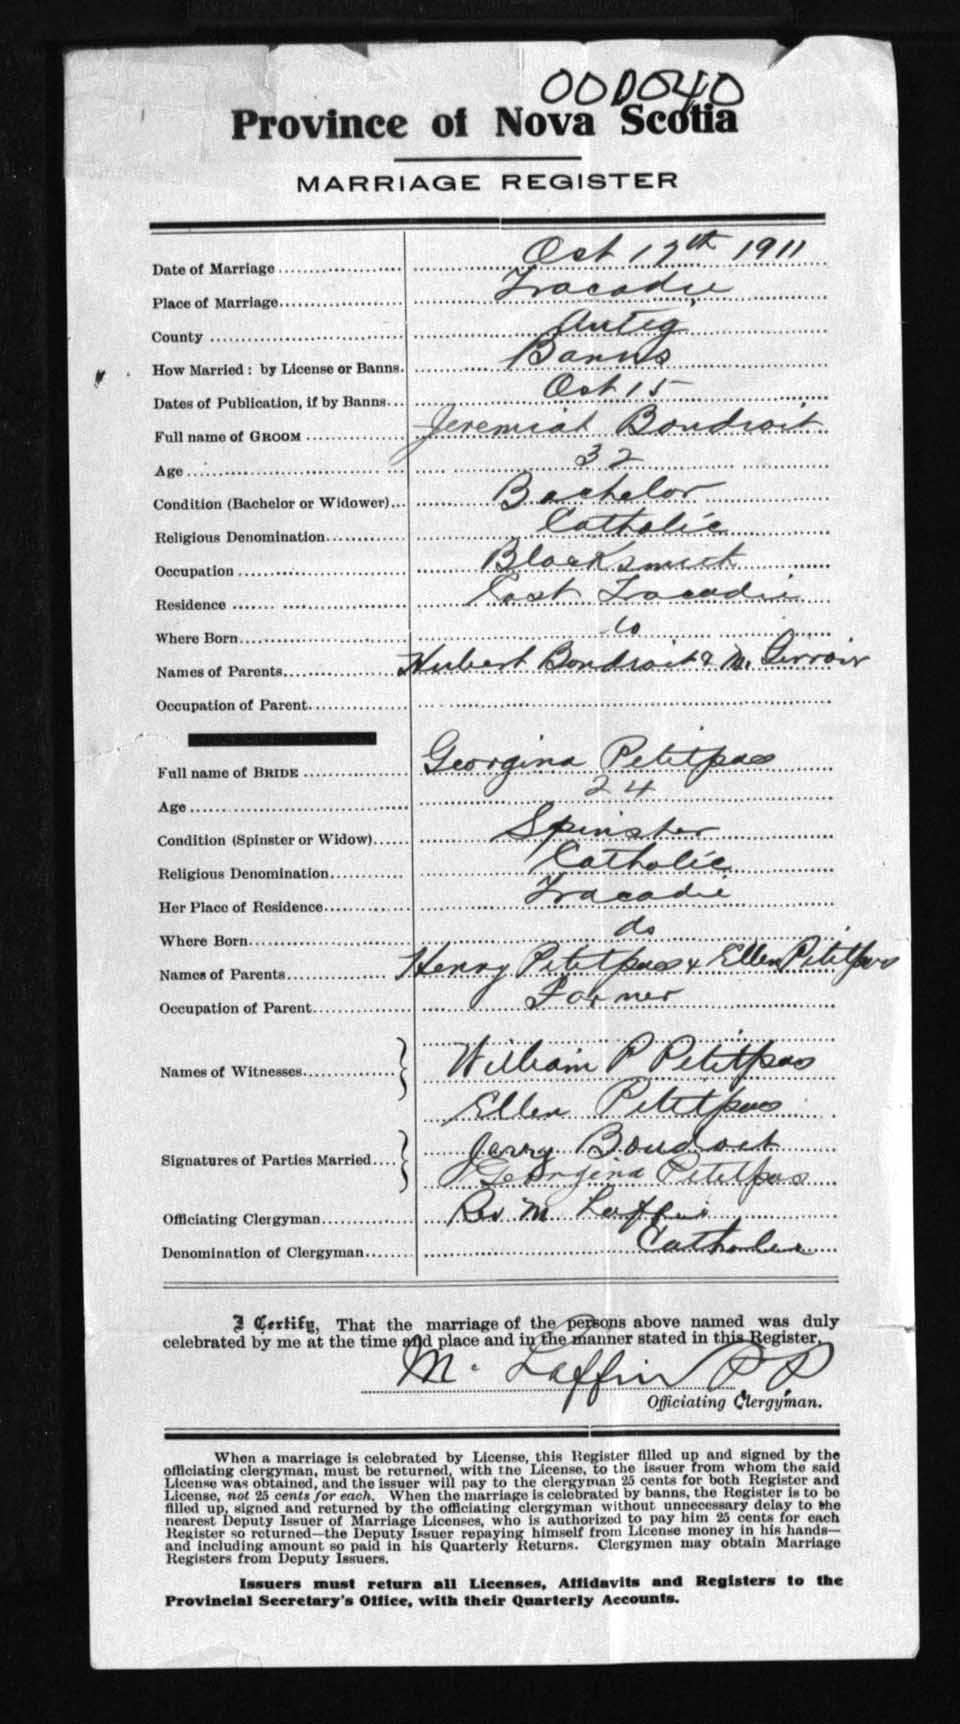 000540
Province of Nova Scotia
MARRIAGE REGISTER
Date of Marriage Oct 17th 1911
Place of Marriage Tracadie
County Antig
How Married: by License or Banns. Banns
Dates of Publication, if by Banns Oct 15
Full name of GROOM Jeremiah Boudroit
Age 32
Condition (Bachelor or Widower) Bachelor
Religious Denomination Catholic
Occupation Blacksmith
Residence East Tracadie
Where Born do
Names of Parents Hubert Boudroit & M. Gerroir
Occupation of Parent
Full name of BRIDE Georgina Petitpas
Age 24
Condition (Spinster or Widow) Spinster
Religious Denomination Catholic
Her Place of Residence Tracadie
Where Born do
Names of Parents Henry Petitpas & Ellen Petitpas
Occupation of Parent Farmer
Names of Witnesses William P Petitpas
Ellen Petitpas
Signatures of Parties Married Jerry Boudroit
Georgina Petitpas
Officiating Clergyman Rev M Laffin
Denomination of Clergyman Catholic
I Certify, That the marriage of the persons above named was duly
celebrated by me at the time and place and in the manner stated in this Register.
M. Laffin P.P.
Officiating Clergyman.
When a marriage is celebrated by License, this Register filled up and signed by the
officiating clergyman, must be returned, with the License, to the issuer from whom the said
License was obtained, and the issuer will pay to the clergyman 25 cents for both Register and
License, not 25 cents for each. When the marriage is celebrated by banns, the Register is to be
filled up, signed and returned by the officiating clergyman without unnecessary delay to the
nearest Deputy Issuer of Marriage Licenses, who is authorized to pay him 25 cents for each
Register so returned—the Deputy Issuer repaying himself from License money in his hands—
and including amount so paid in his Quarterly Returns. Clergymen may obtain Marriage
Registers from Deputy Issuers.
Issuers must return all Licenses, Affidavits and Registers to the
Provincial Secretary's Office, with their Quarterly Accounts.